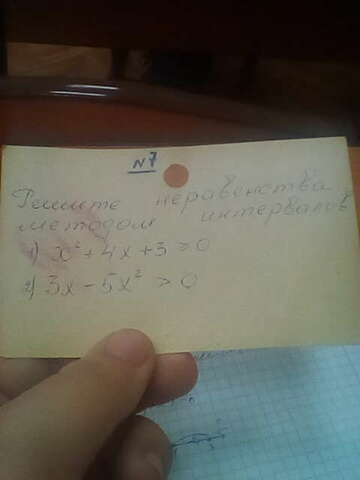 №7
Решите неравенства
методом интервалов
1) x² + 4x + 3 ≥ 0
2) 3x - 5x² > 0